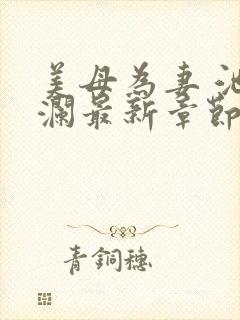 美母為妻 池
瀾最新章節
青銅穗